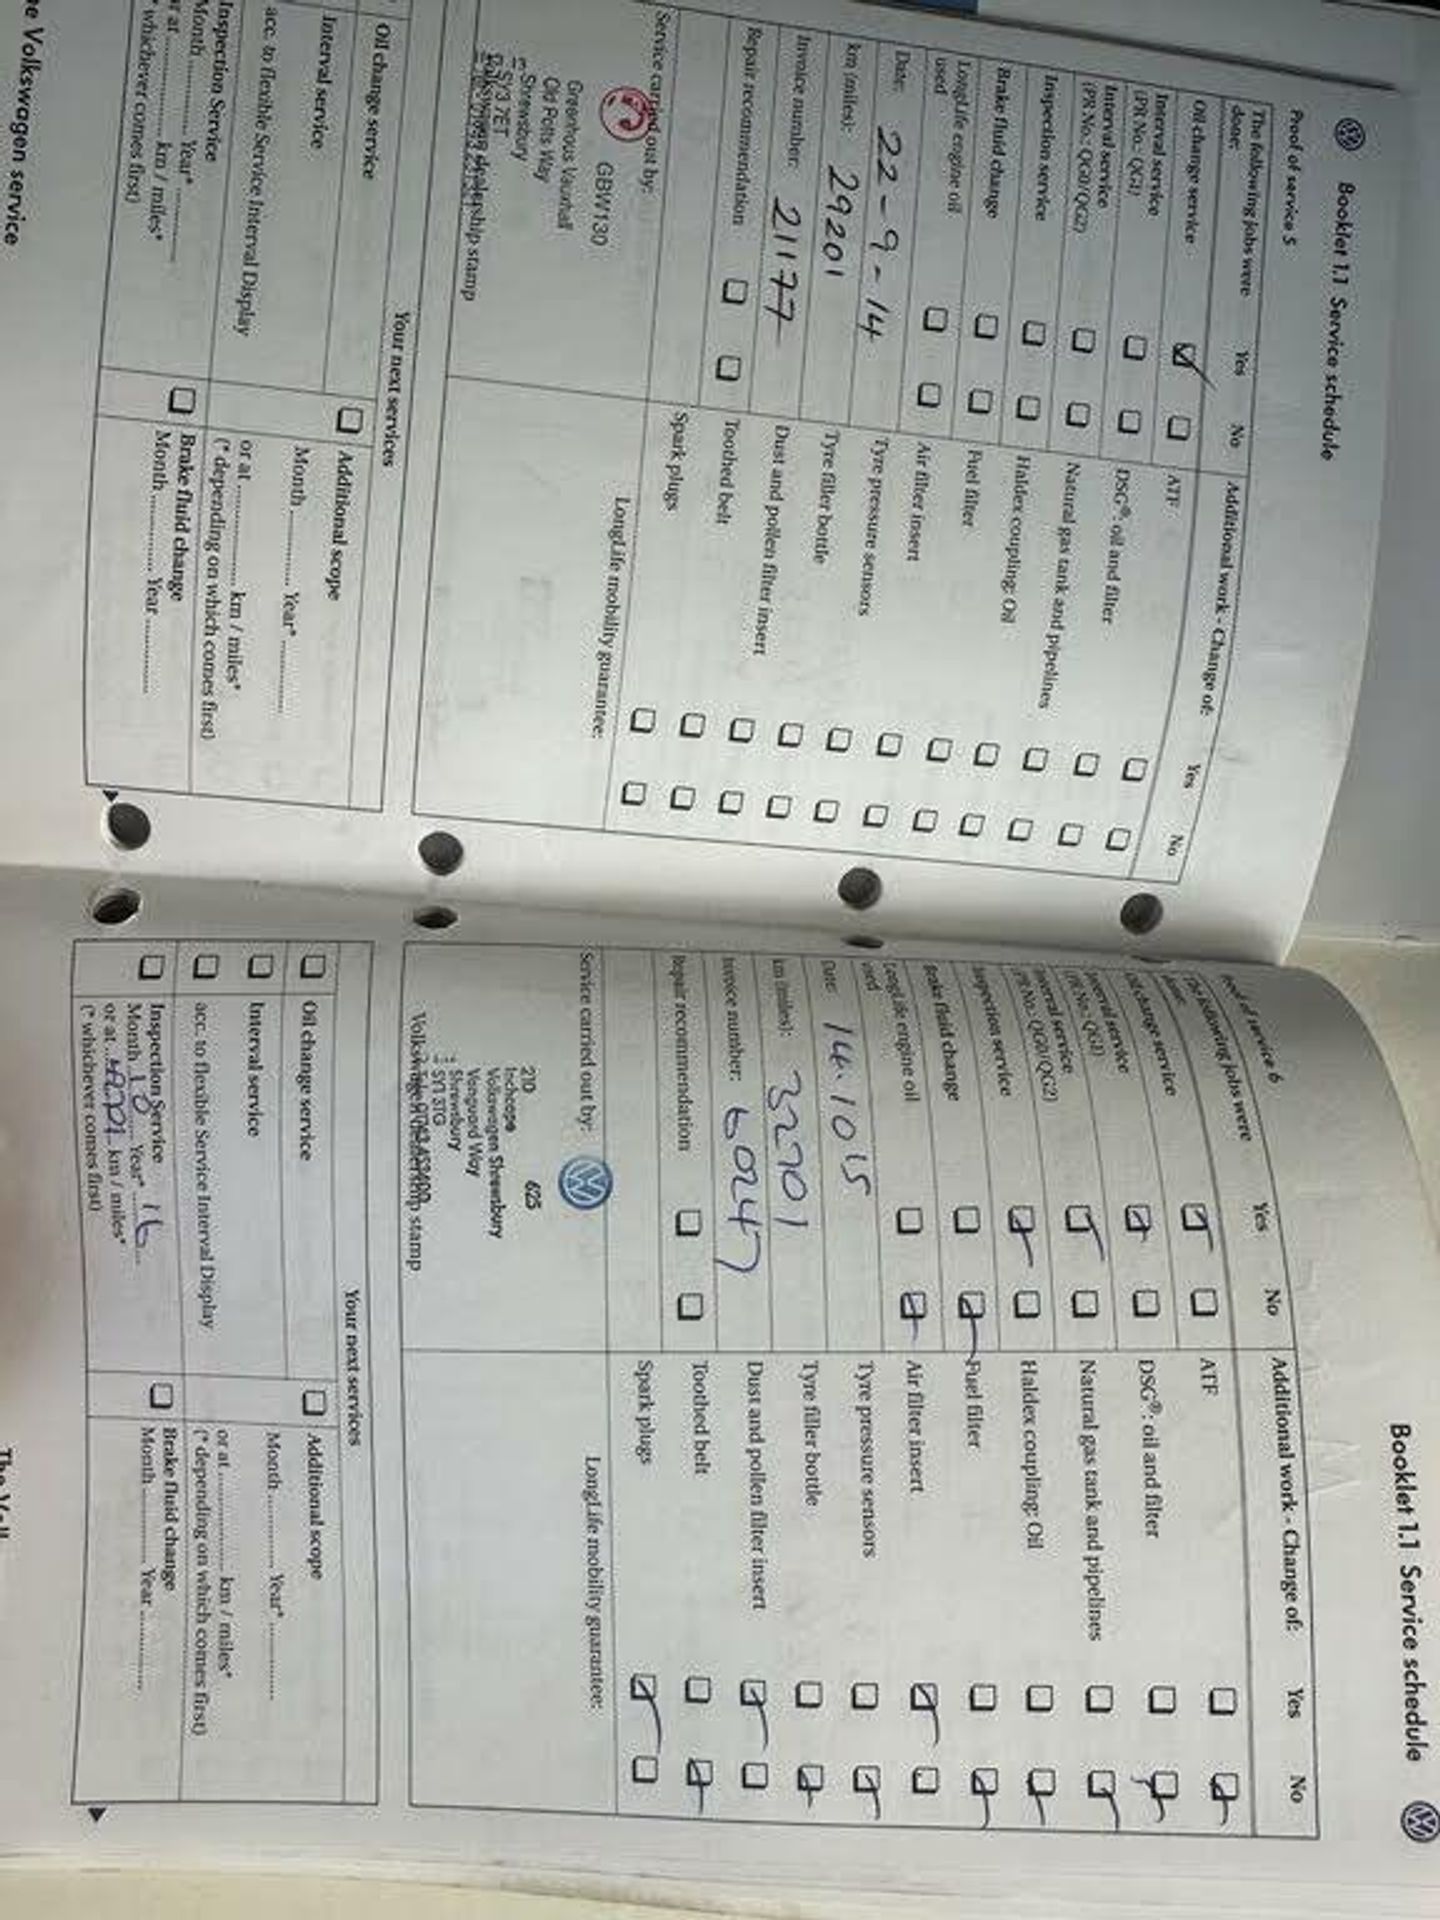 Booklet 1.1 Service schedule
Proof of service 5
The following jobs were done: Yes No
Oil change service
Interval service
(PR No.: QG1)
Interval service
(PR No.: QG0/QG2)
Inspection service
Brake fluid change
LongLife engine oil
used
Date: 22-9-14
km (miles): 29201
Invoice number: 21177
Repair recommendation
Additional work - Change of: Yes No
ATF
DSG®: oil and filter
Natural gas tank and pipelines
Haldex coupling: Oil
Fuel filter
Air filter insert
Tyre pressure sensors
Tyre filler bottle
Dust and pollen filter insert
Toothed belt
Spark plugs
Service carried out by:
LongLife mobility guarantee:
GBW130
Greenhous Vauxhall
Old Potts Way
Shrewsbury
SY3 7ET
Volkswagen dealership stamp
Your next services
Oil change service
Interval service
acc. to flexible Service Interval Display
Inspection Service
Month ............ Year* ............
or at ............ km / miles*
* whichever comes first)
Additional scope
Month ............ Year* ............
or at ............ km / miles*
(* depending on which comes first)
Brake fluid change
Month ............ Year ............
Volkswagen service
Booklet 1.1 Service schedule
Proof of service 6
The following jobs were
done: Yes No
Oil change service
Interval service
(PR No.: QG1)
Interval service
(PR No.: QG0/QG2)
Inspection service
Brake fluid change
LongLife engine oil
used
Date: 14.10 15
km (miles): 32701
Invoice number: 60247
Repair recommendation
Additional work - Change of: Yes No
ATF
DSG®: oil and filter
Natural gas tank and pipelines
Haldex coupling: Oil
Fuel filter
Air filter insert
Tyre pressure sensors
Tyre filler bottle
Dust and pollen filter insert
Toothed belt
Spark plugs
Service carried out by:
LongLife mobility guarantee:
210 625
Inchcape
Volkswagen Shrewsbury
Vanguard Way
Shrewsbury
SY1 3TG
Volkswagen dealership stamp
Your next services
Oil change service
Interval service
acc. to flexible Service Interval Display
Inspection Service
Month 10 Year* 16
or at ............ km / miles*
(* whichever comes first)
Additional scope
Month ............ Year* ............
or at ............ km / miles*
(* depending on which comes first)
Brake fluid change
Month ............ Year ............